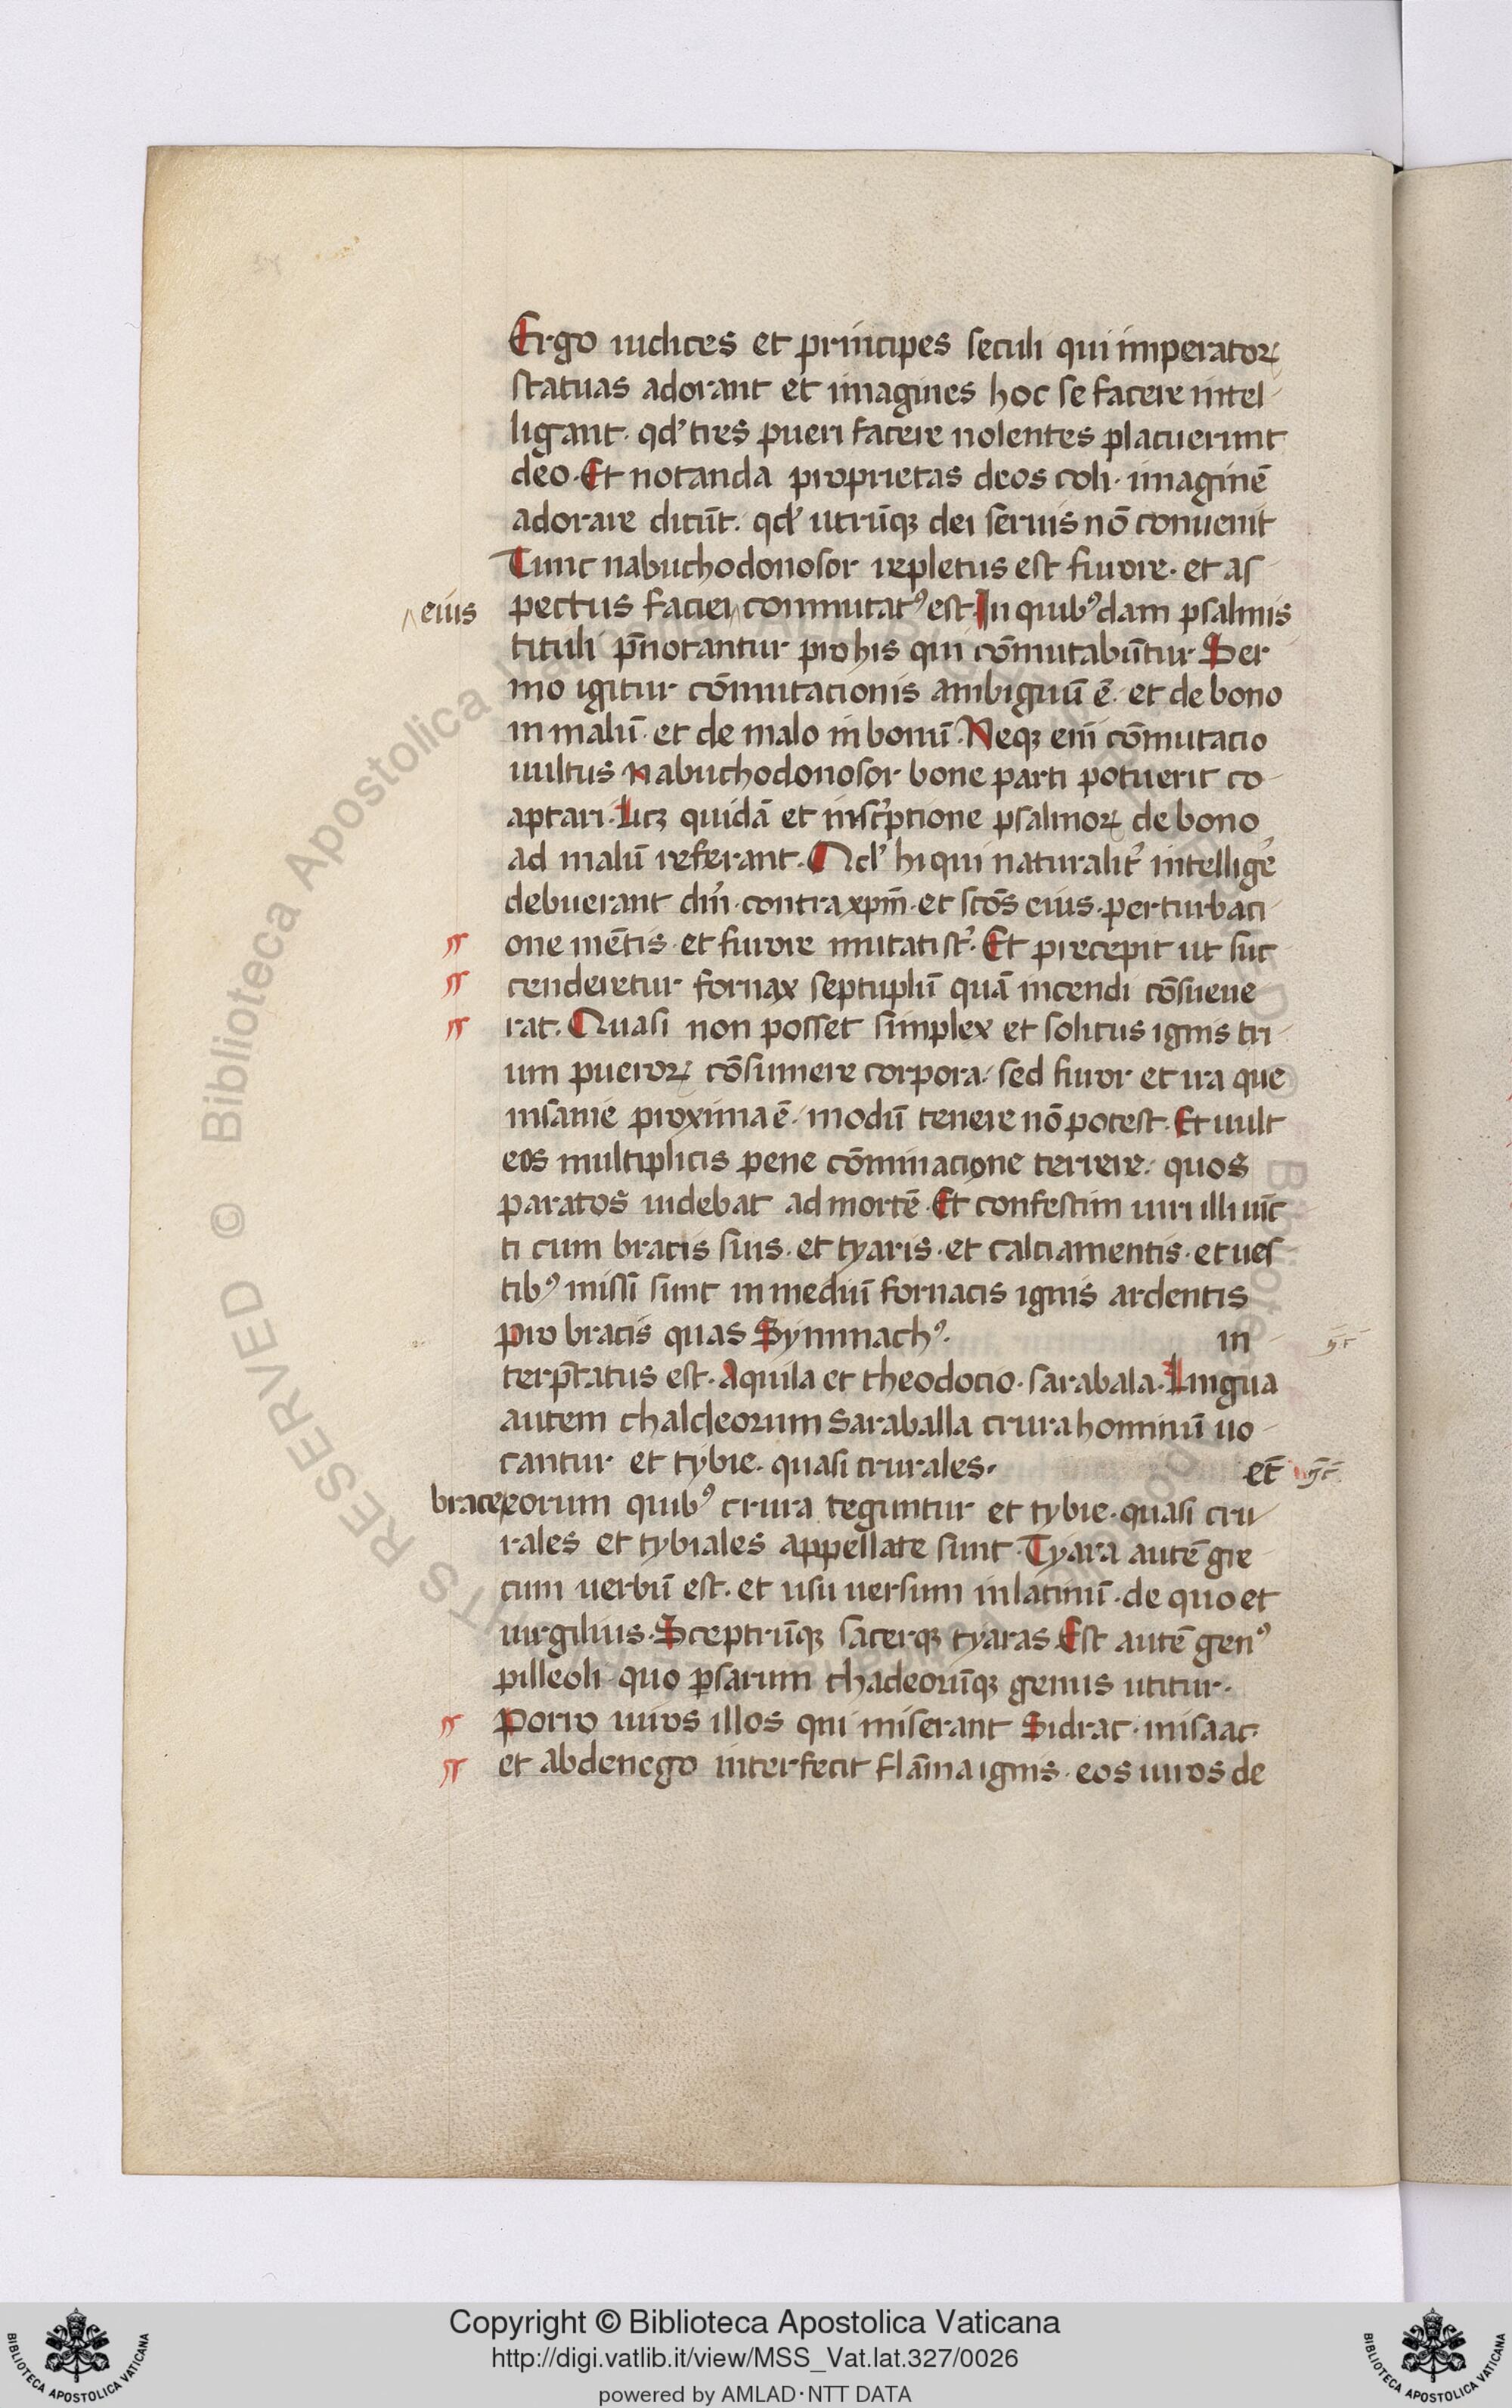 Ergo iudices et principes seculi qui imperatoꝝ
statuas adorant et imagines hoc se facere intel-
ligant. qd' tres pueri facere nolentes placuerunt
deo. Et notanda proprietas deos coli. imaginē
adorare dicūt. qd' utrūqꝫ dei seruis nō conuenit
Tunc nabuchodonosor repletus est furore. et as-
eius pectus faciei conmutatꝰ est. In quibꝰdam psalmis
tituli p̄notantur pro his qui cōmutabūtur. Ser
mo igitur cōmutacionis ambiguū ē. et de bono
in malū. et de malo in bonū. Neqꝫ eni cōmutacio
uultus nabuchodonosor bone parti potuerit co-
aptari. Licꝫ quidā et inscr̓ptione psalmoꝝ de bono
ad malū referant. Qd' hi qui naturalit̓ intellige̓
debuerant dn̄i. contra xp̄m. et scōs eius. perturbaci-
one mētis. et furore mutati st̓. Et precepit ut suc-
cenderetur fornax septuplū quā incendi cōsueue
rat. Quasi non posset simplex et solitus ignis tri-
um pueroꝝ cōsumere corpora. sed furor et ira que
insanie proxima ē. modū tenere nō potest. Et uult
eos multiplicis pene cōminacione terrere. quos
paratos uidebat ad mortē. Et confestim uiri illi uīc-
ti cum bracis suis. et tyaris. et calciamentis. et ues
tibꝰ missi sunt in mediū fornacis ignis ardentis
pro bracis quas Symmachꝰ. in
terp̄tatus est. Aquila et theodocio. sarabala. Lingua
autem chaldeorum saraballa crura hominū uo-
cantur et tybie. quasi crurales. et̄
brace eorum quibꝰ crura teguntur et tybie. quasi cru-
rales et tybiales appellate sunt. Tyara autē gre-
cum uerbū est. et usu uersum in latinū. de quo et
uirgilius. Sceptrūqꝫ sacerqꝫ tyaras. Est autē genꝰ
pilleoli. quo ꝑsarum chadeorūqꝫ genus utitur.
Porro uiros illos qui miserant Sidrac. misaac.
et abdenego interfecit flāma ignis. eos uiros de
Copyright © Biblioteca Apostolica Vaticana
http://digi.vatlib.it/view/MSS_Vat.lat.327/0026
powered by AMLAD·NTT DATA